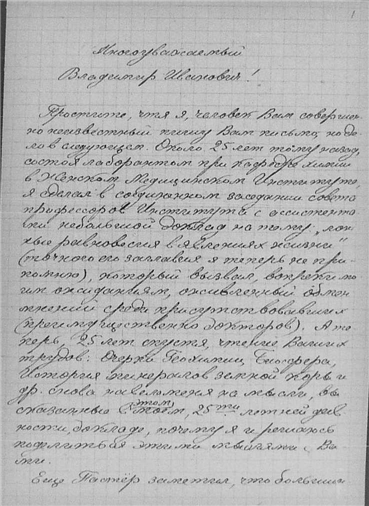 1
Многоуважаемый
Владимир Иванович!
Простите, что я, человек Вам совершен-
но неизвестный пишу Вам письмо, но де-
ло в следующем. Около 25 лет тому назад,
состоя лаборантом при кафедре химии
в Женском Медицинском Институте,
я сделал в соединенном заседании совета
профессоров Института с ассистента-
ми небольшой доклад на тему „лож-
ные равновесия в явлениях жизни“
(точного его заглавия я теперь не при-
помню), который вызвал, вопреки мо-
им ожиданиям, оживленный обмен
мнений среди присутствовавших
(преимущественно докторов). А те-
перь, 25 лет спустя, чтение Ваших
трудов: Очерки Геохимии, Биосфера,
История минералов земной коры и
др. снова навели меня на мысли, вы-
сказанные в этом, 25ти летней дав-
ности, докладе, почему я и решаюсь
поделиться этими мыслями с Ва-
ми.
Еще Пастер заметил, что большин-